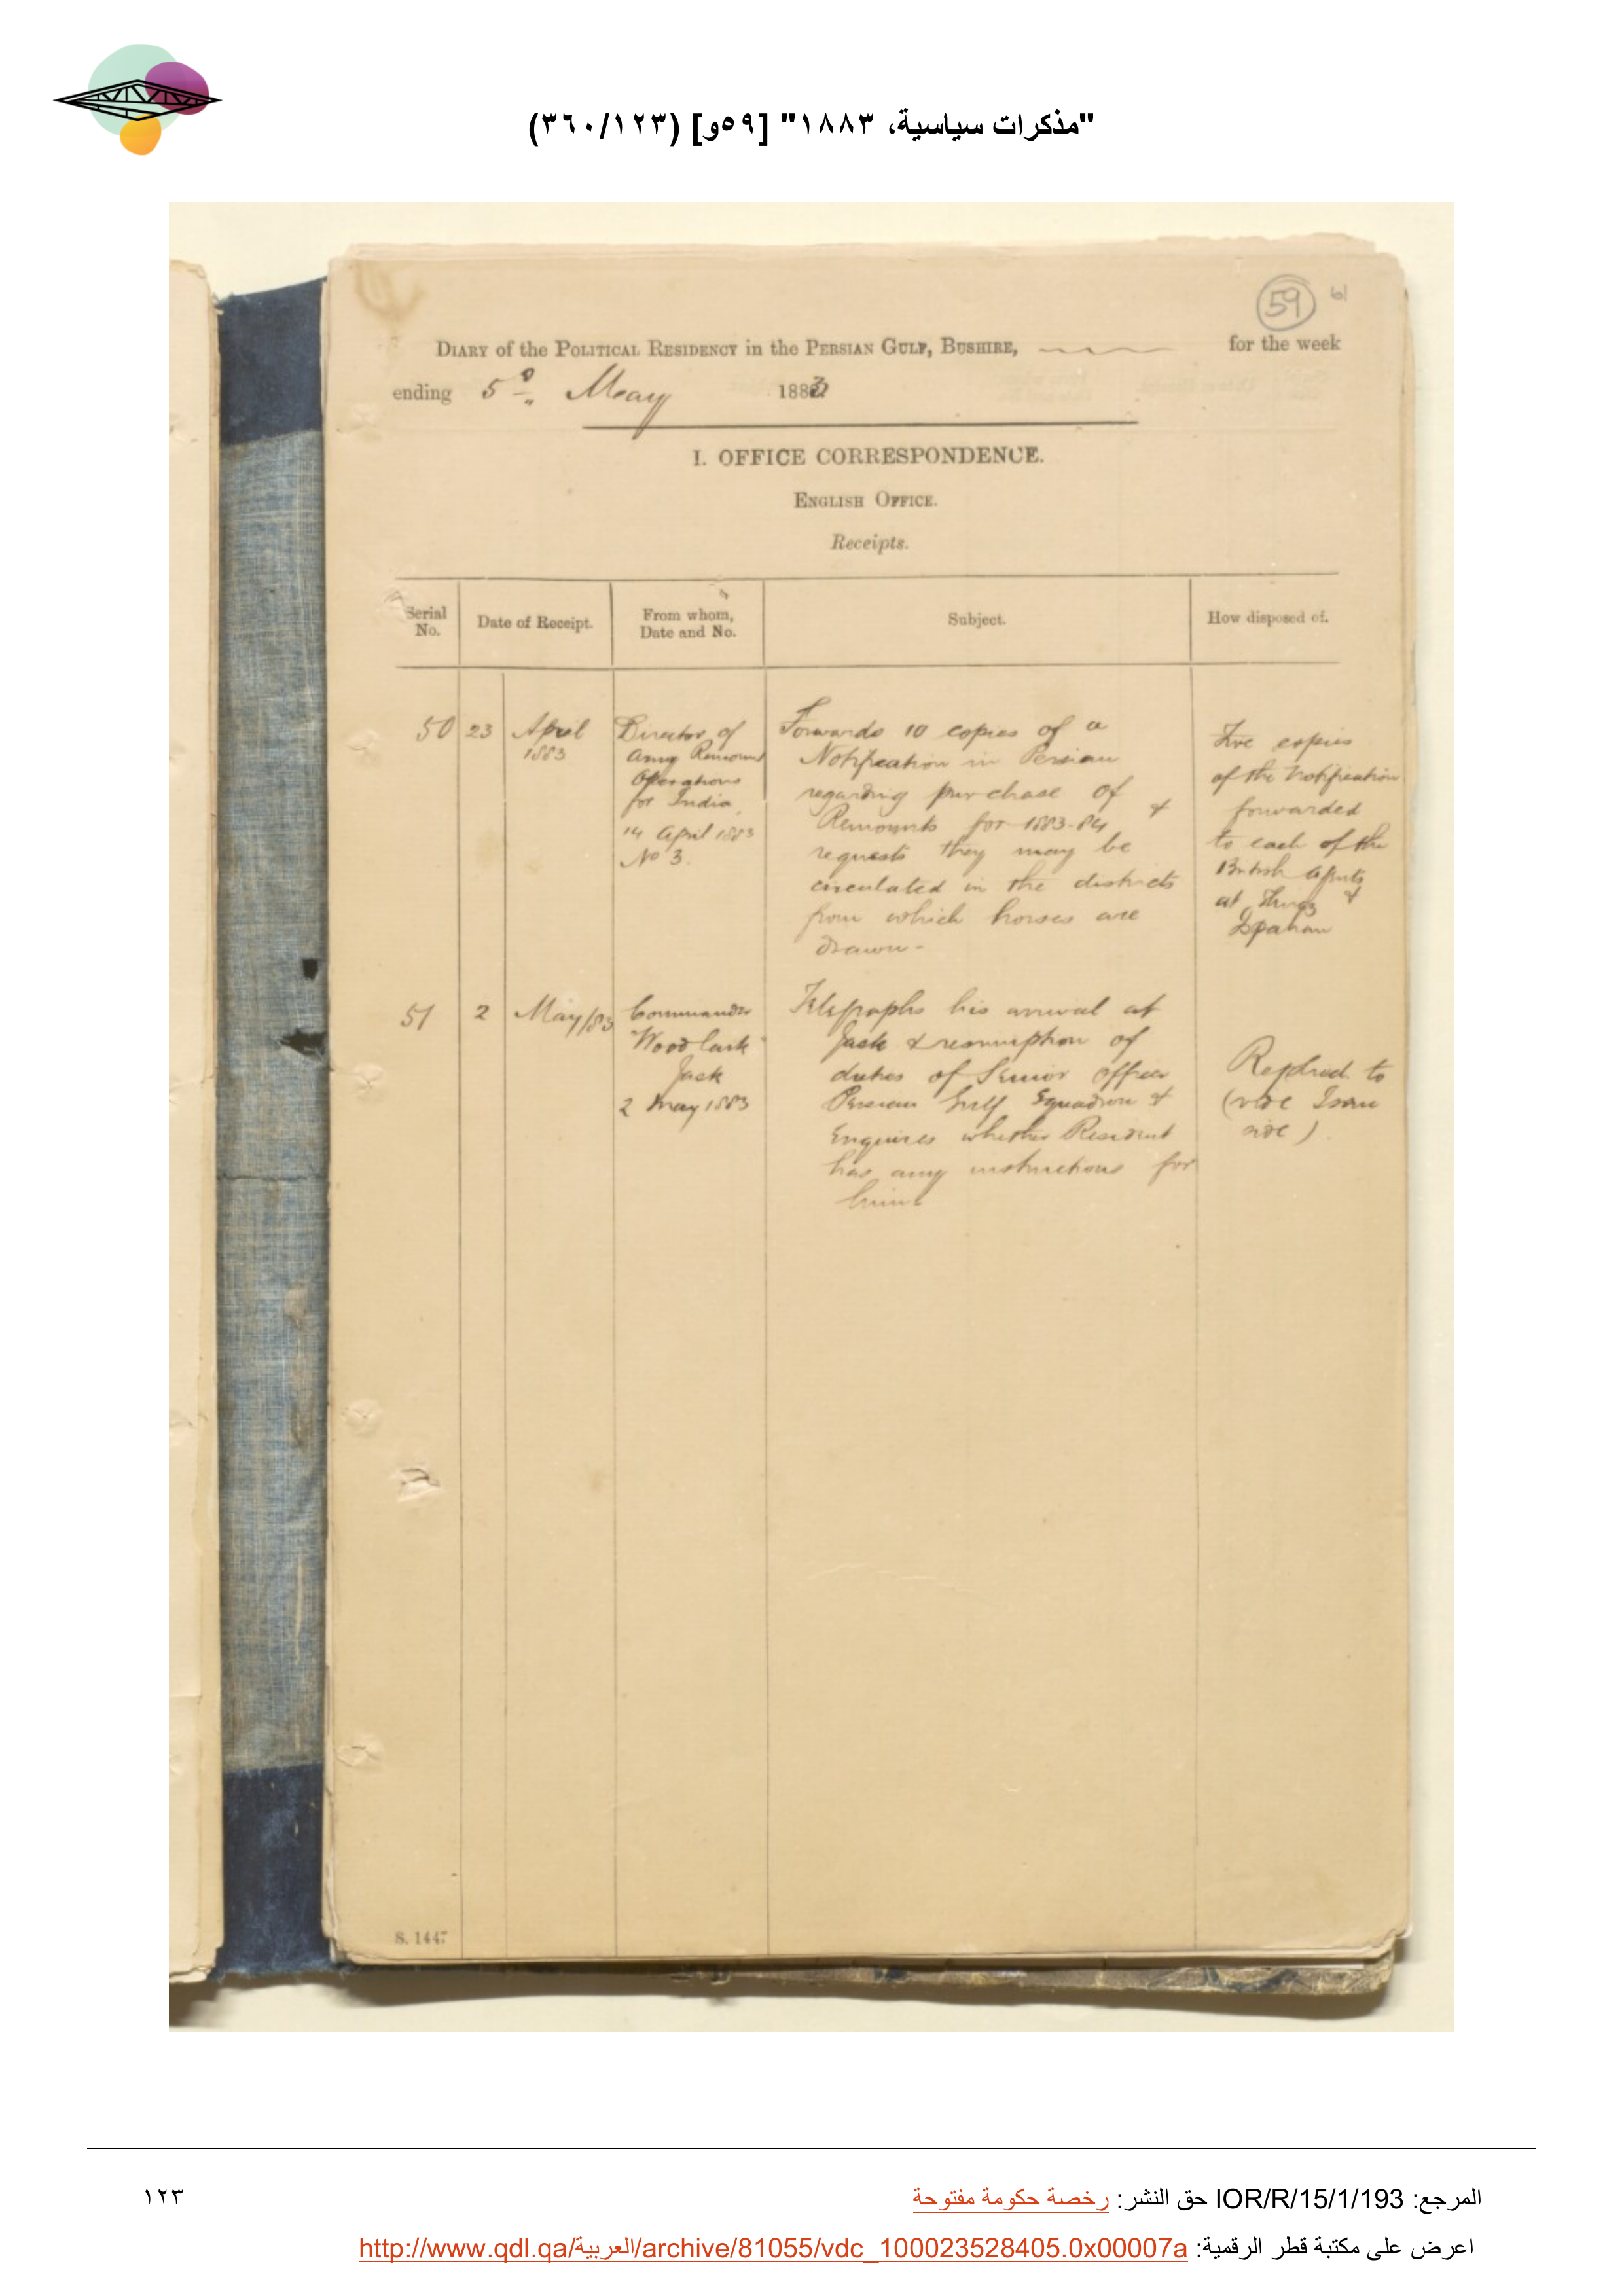 "مذكرات سياسية، ١٨٨٣" [٥٩و] (٣٦٠/١٢٣)
59
61
DIARY of the POLITICAL RESIDENCY in the PERSIAN GULF, BUSHIRE, for the week
ending 5th May 1883
I. OFFICE CORRESPONDENCE.
ENGLISH OFFICE.
Receipts.
Serial No.
Date of Receipt.
From whom, Date and No.
Subject.
How disposed of.
50
23
April
1883
Director of
Army Remount
Operations
for India
14 April 1883
No 3.
Forwards 10 copies of a
Notification in Persian
regarding purchase of
Remounts for 1883-84 &
requests they may be
circulated in the districts
from which horses are
drawn-
Five copies
of the Notification
forwarded
to each of the
British Agents
at Shiraz &
Ispahan
51
2
May/83
Commander
"Woodlark"
Jask
2 May 1883
Telegraphs his arrival at
Jask & resumption of
duties of Senior Officer
Persian Gulf Squadron &
Enquires whether Resident
has any instructions for
him
Replied to
(vide Issue
side)
S. 1447
المرجع: IOR/R/15/1/193 حق النشر: رخصة حكومة مفتوحة
١٢٣
اعرض على مكتبة قطر الرقمية: http://www.qdl.qa/العربية/archive/81055/vdc_100023528405.0x00007a